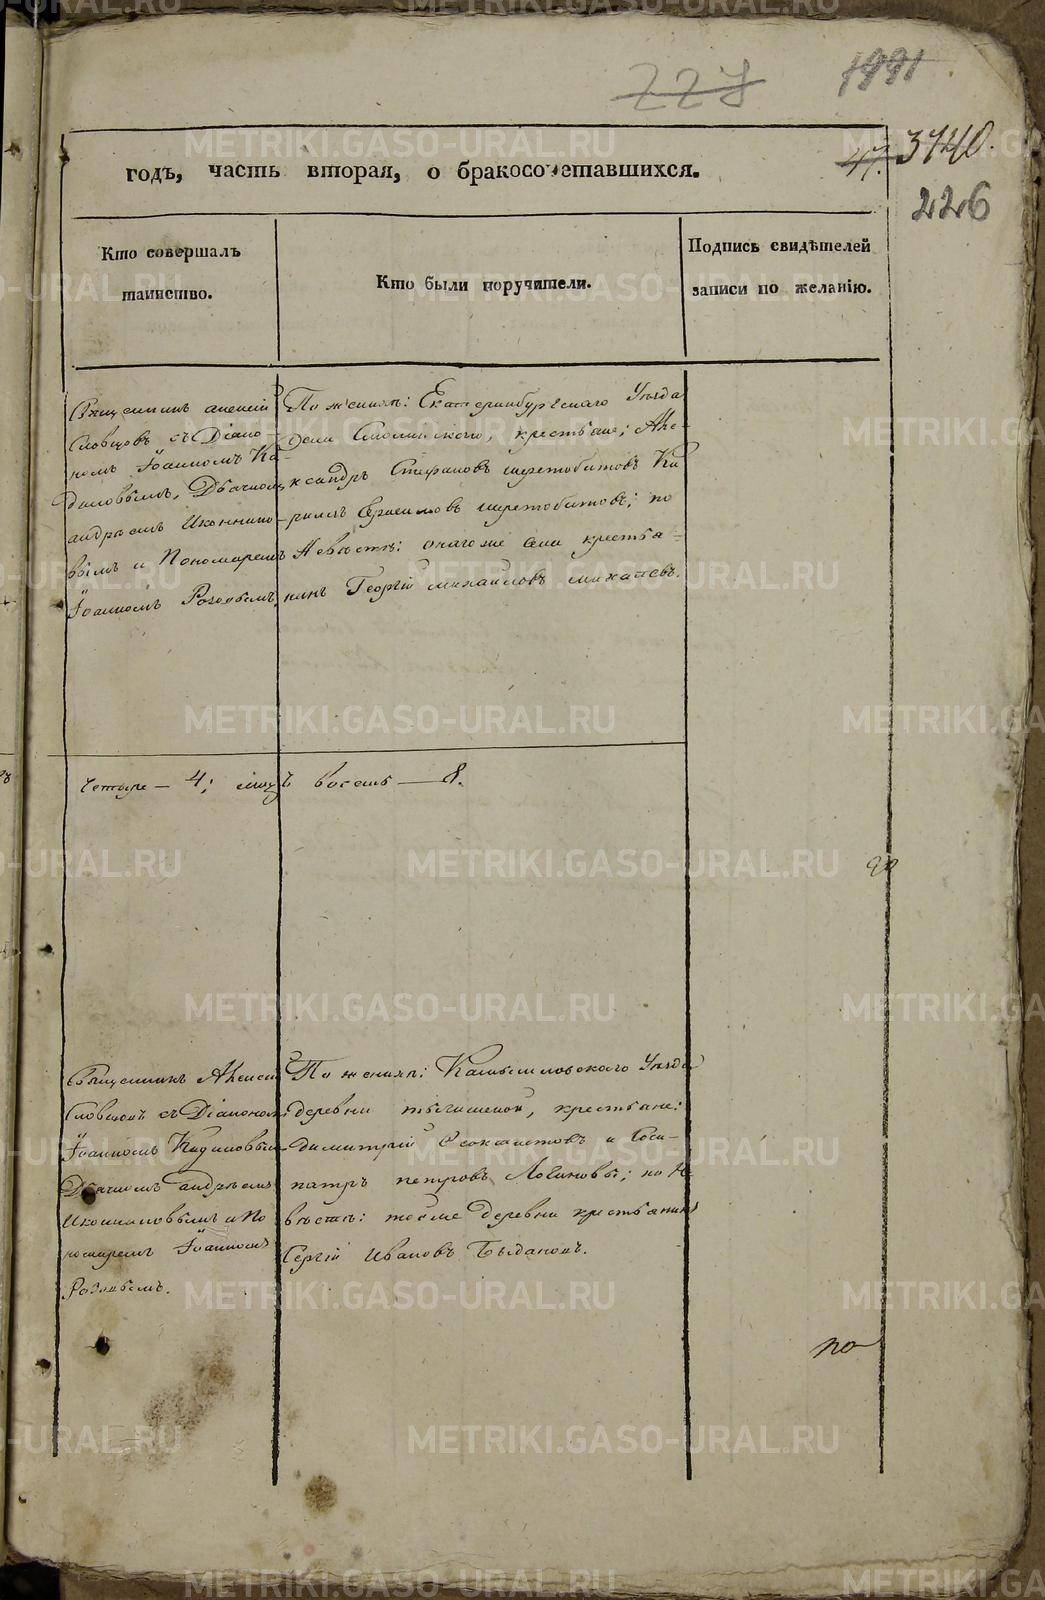 227
1991
годъ, часть вторая, о бракосочетавшихся.
47. 3740.
226
Кто совершалъ
таинство.
Кто были поручители.
Подпись свидѣтелей
записи по желанію.
Священникъ Алексій
Словцовъ съ Діако-
номъ Іоанномъ Ка-
диловымъ, Дьячкомъ
андрѣемъ Иконнико-
вымъ и Пономаремъ
Іоанномъ Розовымъ.
По женихѣ: Екатеринбургскаго Уѣзда
Села Смолинскаго, крестьане; Але-
ксандръ Стефановъ шеретобитовъ Ки
рилъ шеретобитовъ; по
Невѣстѣ: онагоже Села крестьа-
нинъ Георгій михайловъ михалевъ.
Четыре — 4; мцъ восемь — 8.
Священникъ Алексій
Словцовъ съ Діакономъ
Іоанномъ Кадиловым
Дьячкомъ андрѣемъ
Иконниковымъ и По
номаремъ Іоанномъ
Розовымъ.
По женихѣ: Камышловскаго Уѣзда
деревни крестьане:
димитрій и Соси-
патръ петровъ Логиновы; по Не
вѣстѣ: тойже деревни крестьанинъ
Сергій Ивановъ
по
METRIKI.GASO-URAL.RU